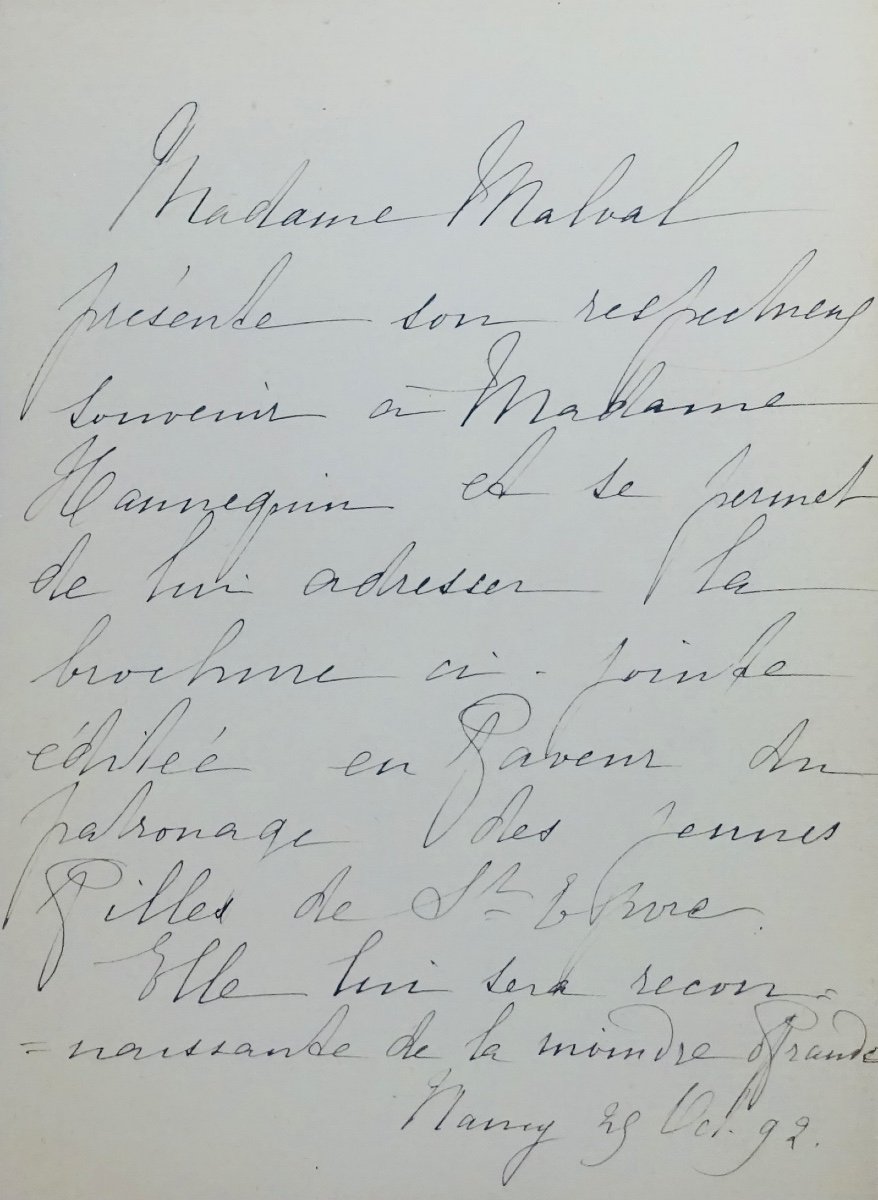 Madame Malval
présente son respectueux
souvenir à Madame
Hannequin et se permet
de lui adresser la
brochure ci-jointe
éditée en faveur du
patronage des jeunes
filles de St Epvre.
Elle lui sera recon=
=naissante de la moindre offrande
Nancy 25 Oct. 92.